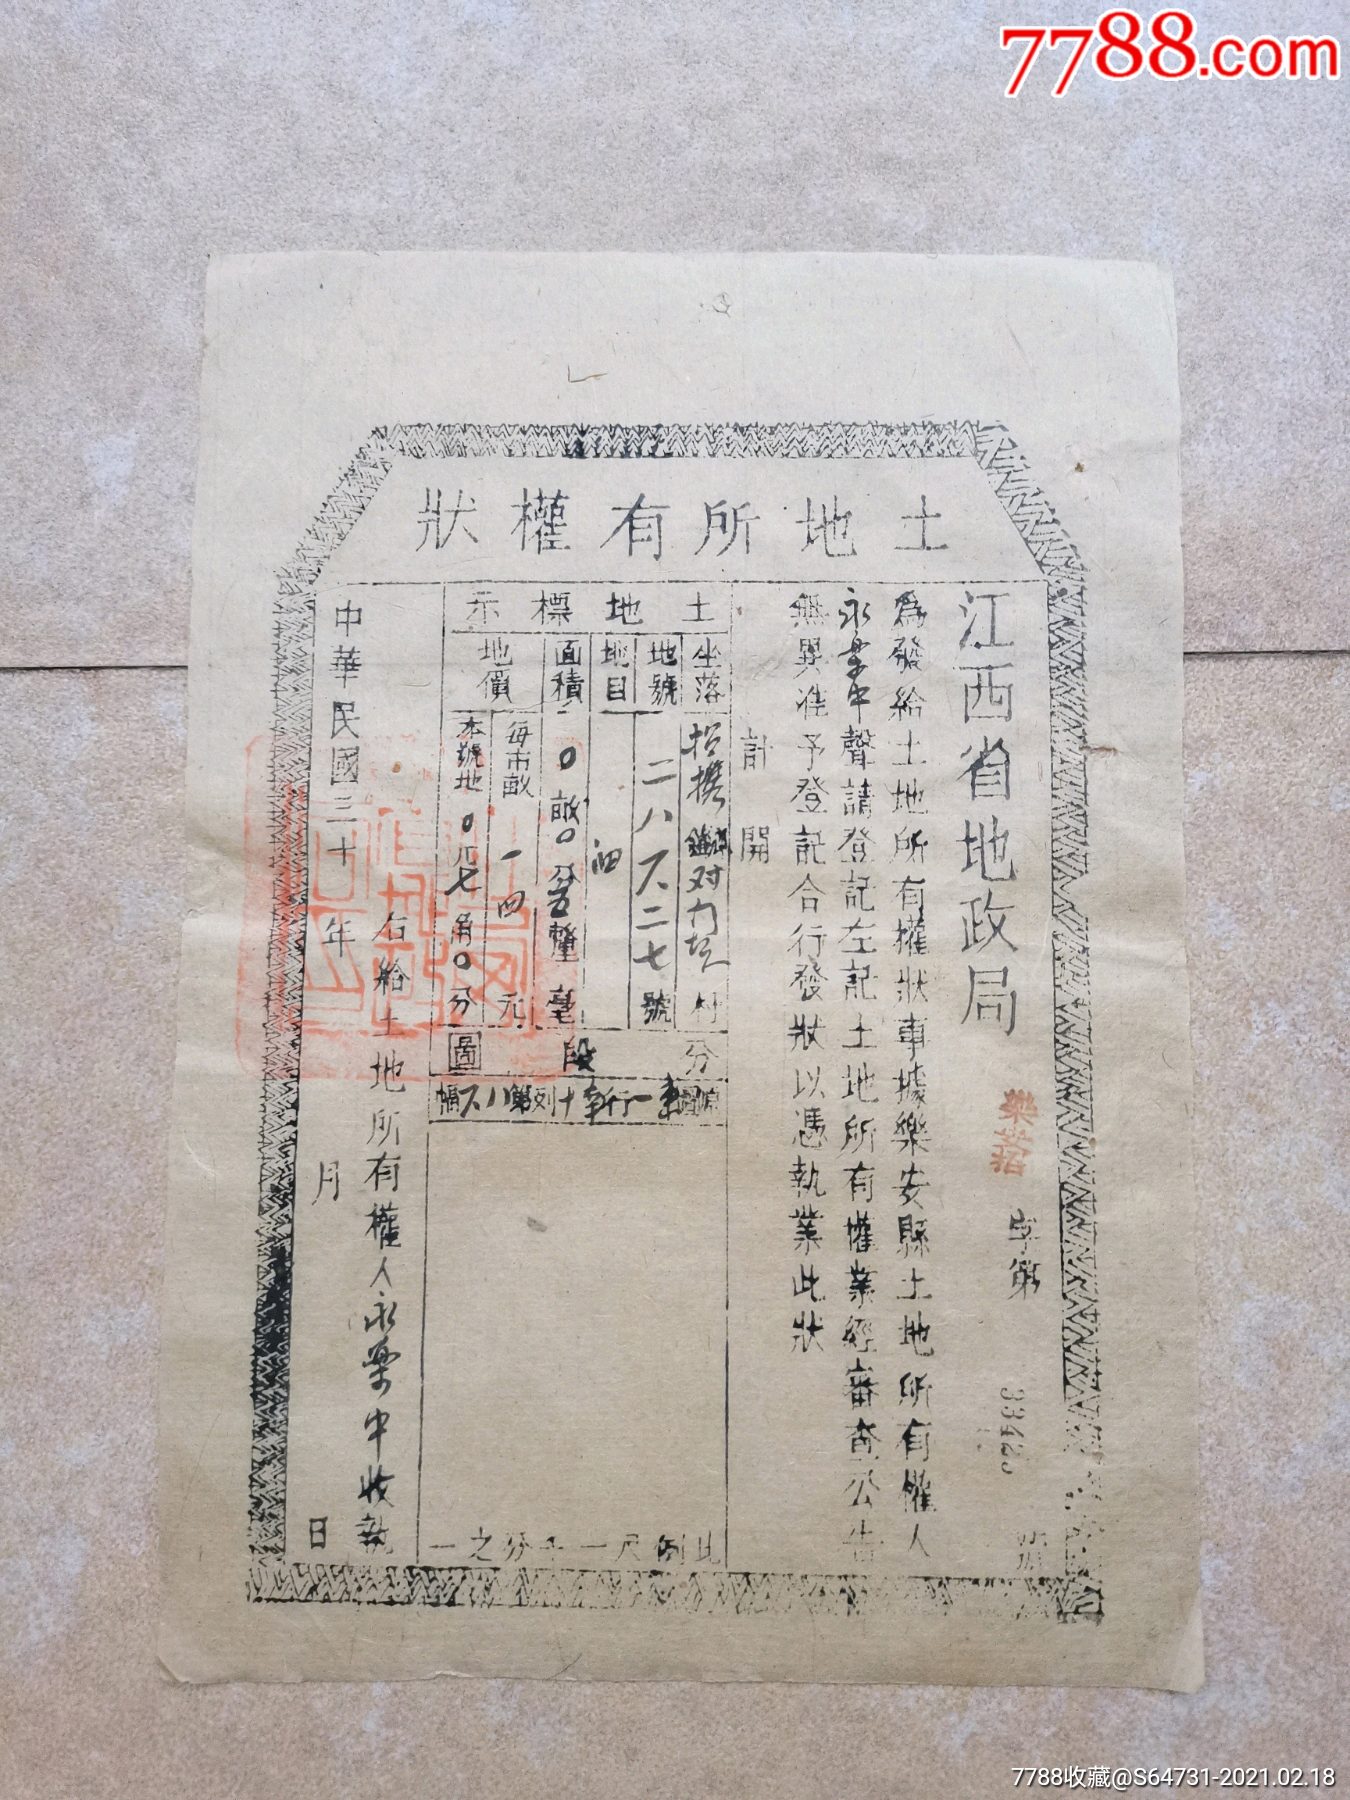 7788.com
土地所有權狀
江西省地政局
樂 字第 號
為發給土地所有權狀事據樂安縣土地所有權人
永樂中聲請登記左記土地所有權業經審查公告
無異准予登記合行發狀以憑執業此狀
計開
土地標示
坐落 招携 鎮 对 坑 村
地號 二八六二七號
地目
面積 0畝0分五釐 毫
地價 每市畝 一四元
本號地 0元七角0分
分段圖
一行 十列第八六幅
比例尺一千分之一
右給土地所有權人永樂中收執
中華民國三十 年 月 日
7788收藏@S64731-2021.02.18